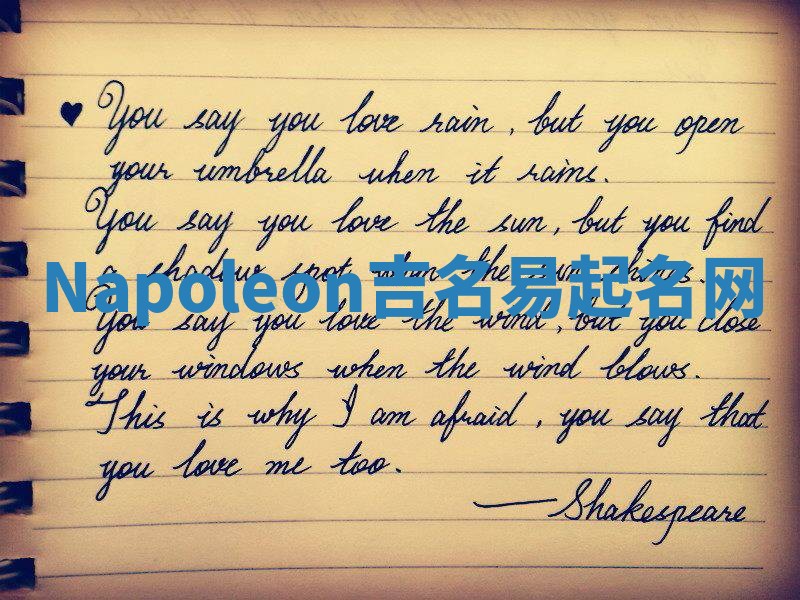 You say you love rain, but you open
your umbrella when it rains.
You say you love the sun, but you find
a shadow spot when the sun shines.
Napoleon吉名易起名网
You say you love the wind, but you close
your windows when the wind blows.
This is why I am afraid, you say that
you love me too.
—Shakespeare